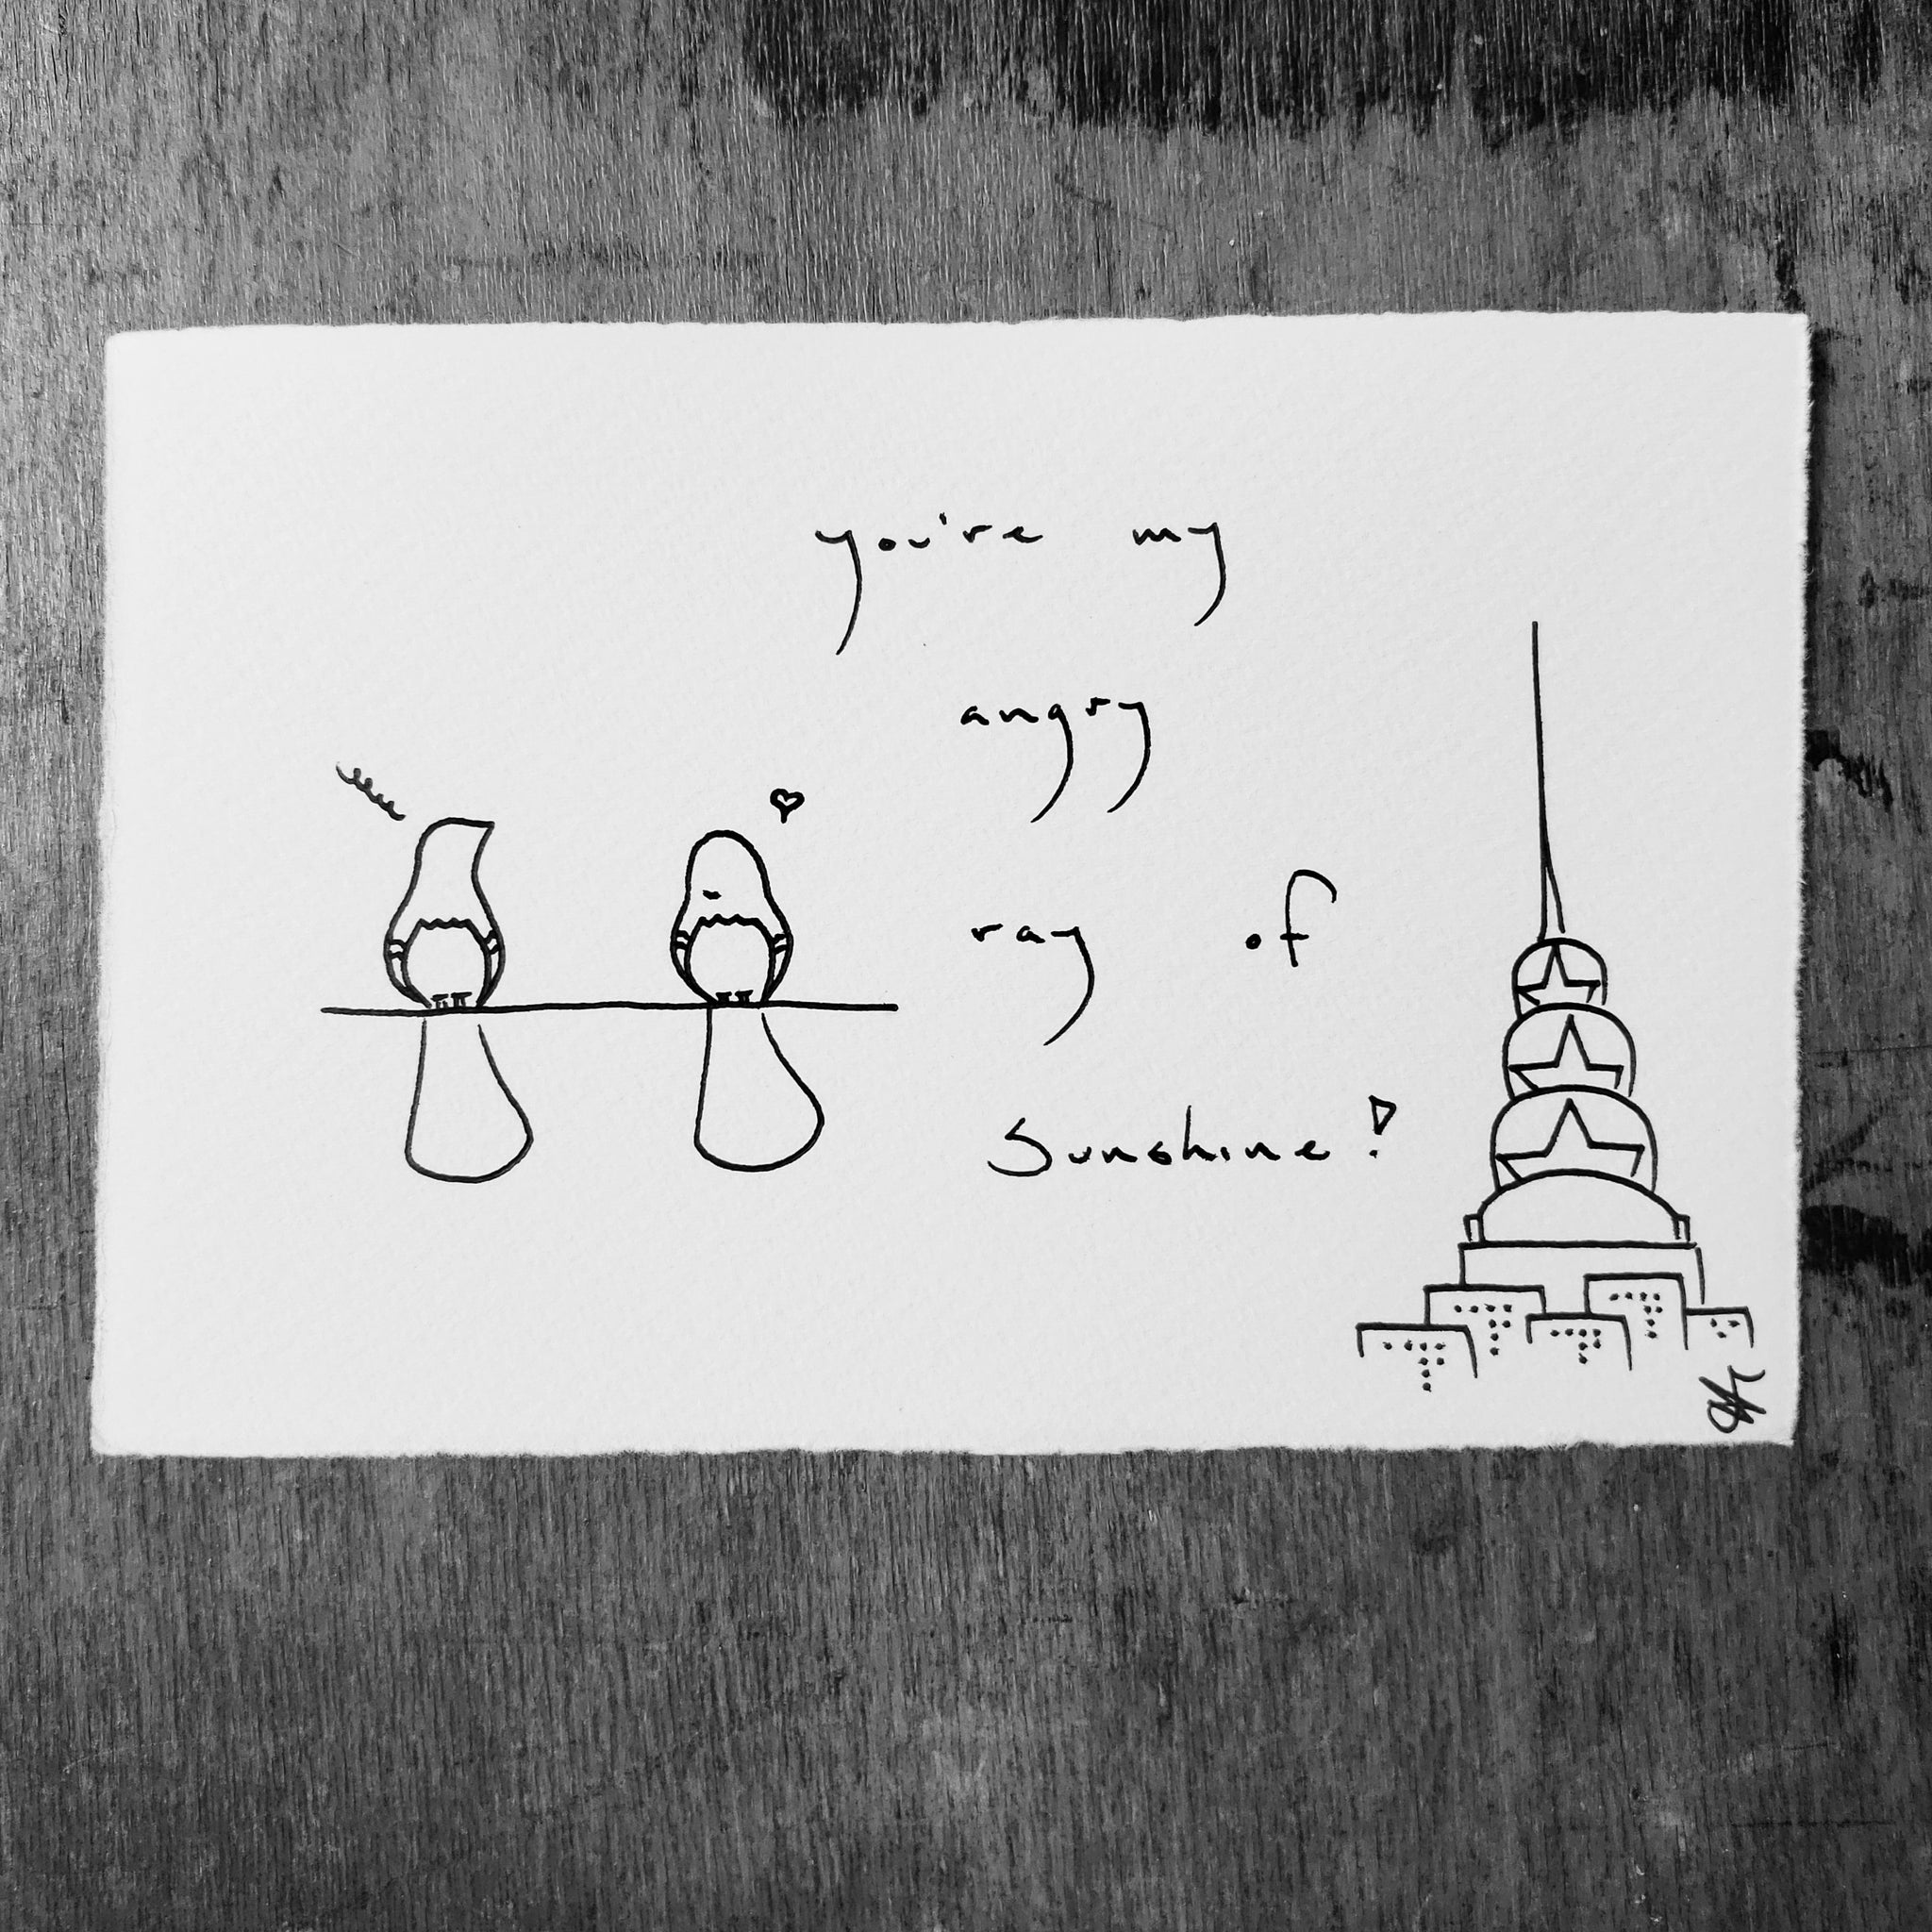 you're my
angry
ray of
Sunshine!